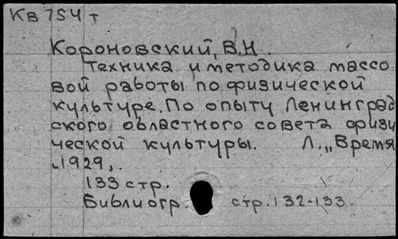 Кв 754 т
Короновский, В.Н.
Техника и методика массо
вой работы по физической
культуре. По опыту Ленинград
ского областного совета физи
ческой культуры. Л., „Время
1929,.
133 стр.
Библиогр. стр. 132-133.